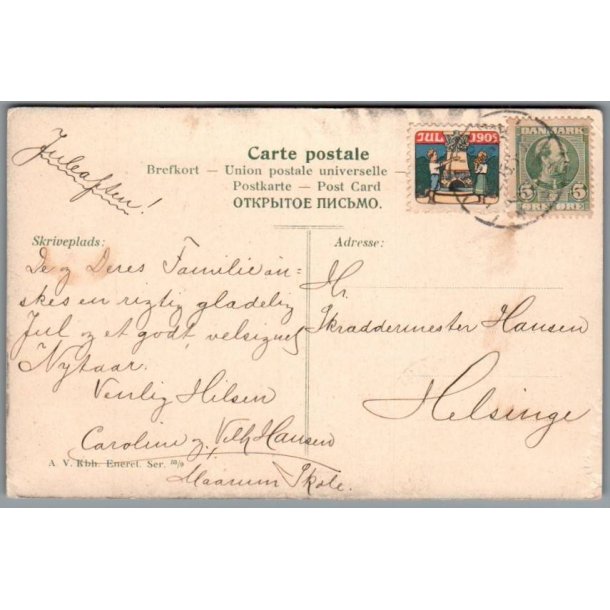 Juleaften!
Carte postale
Brefkort — Union postale universelle —
Postkarte — Post Card
ОТКРЫТОЕ ПИСЬМО.
JUL 1905
DANMARK
5 5
ØRE ØRE
Skriveplads:
De og Deres Familie øn-
skes en rigtig glædelig
Jul og et godt, velsignet
Nytaar.
Venlig Hilsen
Caroline og Vilh Hansen
Maarum Skole.
A. V. Kbh. Eneret. Ser.
Adresse:
Hr.
Skræddermester Hansen
Helsinge